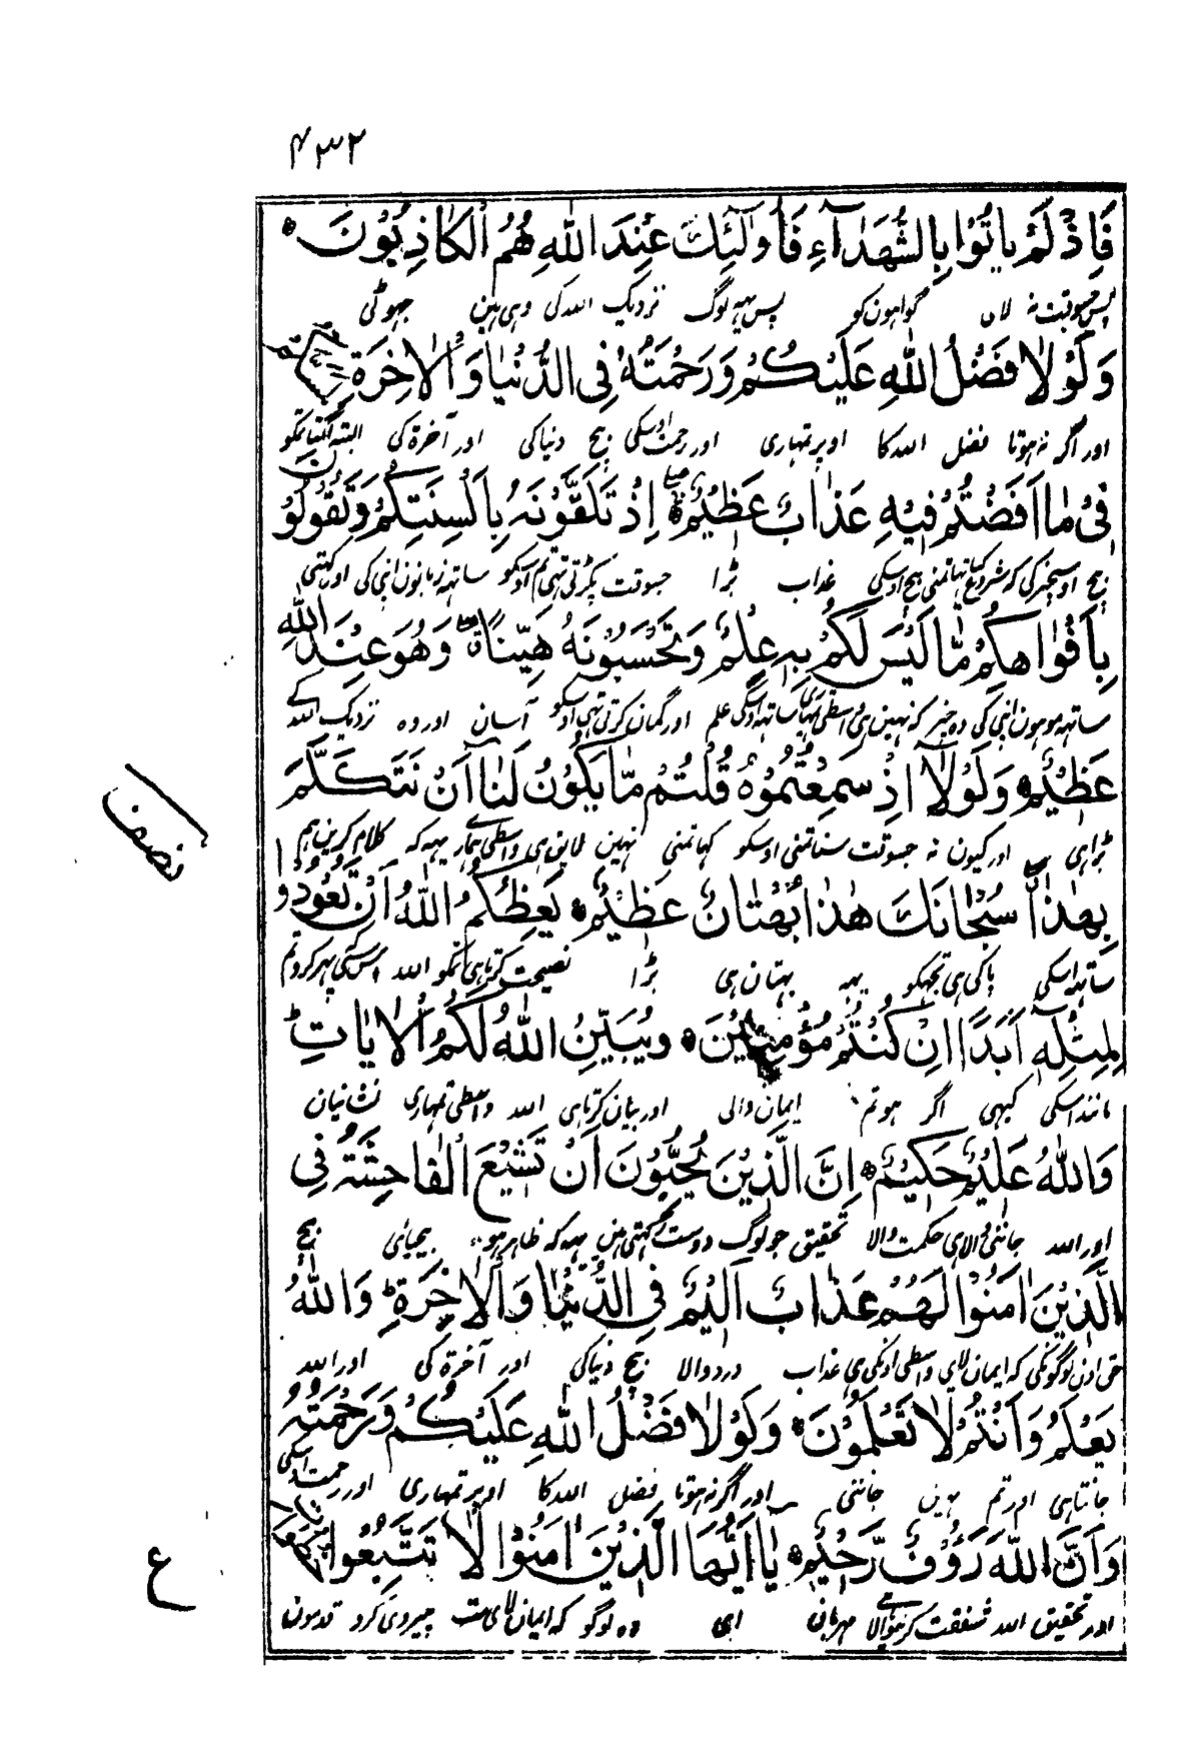 ۴۳۲
فَاِذْ لَمْ يَاْتُوْا بِالشُّهَدَآءِ فَاُولٰٓئِكَ عِنْدَ اللّٰهِ هُمُ الْكَاذِبُوْنَ
پس جسوقت نہ لاں گواہون کو پس یہہ لوگ نزدیک اللہ کی وہی ہین جہوٹی
وَلَوْلَا فَضْلُ اللّٰهِ عَلَيْكُمْ وَرَحْمَتُهٗ فِى الدُّنْيَا وَالْاٰخِرَةِ لَمَسَّكُمْ
اور اگر نہ ہوتا فضل اللہ کا اوپر تمہاری اور رحمت اوسکی بیچ دنیا کی اور آخرة کی البتہ لگتا تمکو
فِىْ مَا اَفَضْتُمْ فِيْهِ عَذَابٌ عَظِيْمٌ اِذْ تَلَقَّوْنَهٗ بِاَلْسِنَتِكُمْ وَتَقُوْلُوْنَ
بیچ اوسچیز کی کہ شروع کیا تہا تمنی بیچ اوسکی عذاب بڑا جسوقت پکڑتی تہی تم اوسکو ساتہہ زبانون اپنی کی اور کہتی
بِاَفْوَاهِكُمْ مَّا لَيْسَ لَكُمْ بِهٖ عِلْمٌ وَتَحْسَبُوْنَهٗ هَيِّنًا وَهُوَ عِنْدَ اللّٰهِ
ساتہہ موہون اپنی کی وہ چیز کہ نہین واسطی تمہاری ساتہہ اوسکی علم اور گمان کرتی تہی اوسکو آسان اور وہ نزدیک اللہ کے
عَظِيْمٌ وَلَوْلَا اِذْ سَمِعْتُمُوْهُ قُلْتُمْ مَّا يَكُوْنُ لَنَا اَنْ نَتَكَلَّمَ
بڑا ہی اور کیون نہ جسوقت سنا تمنی اوسکو کہا تمنی نہین لایق ہی واسطی ہماری یہہ کہ کلام کرین ہم
بِهٰذَا سُبْحَانَكَ هٰذَا بُهْتَانٌ عَظِيْمٌ يَعِظُكُمُ اللّٰهُ اَنْ تَعُوْدُوْا
ساتہہ اسکی پاکی ہی تجہکو یہہ بہتان ہی بڑا نصیحت کرتا ہی تمکو اللہ اس سی کہ پہر کرو تم
لِمِثْلِهٖ اَبَدًا اِنْ كُنْتُمْ مُؤْمِنِيْنَ وَيُبَيِّنُ اللّٰهُ لَكُمُ الْاٰيَاتِ
مانند اسکی کبہی اگر ہو تم ایمان والی اور بیان کرتا ہی اللہ واسطی تمہاری نشانیان
وَاللّٰهُ عَلِيْمٌ حَكِيْمٌ اِنَّ الَّذِيْنَ يُحِبُّوْنَ اَنْ تَشِيْعَ الْفَاحِشَةُ فِى
اور اللہ جاننی والا ہی حکمت والا تحقیق جو لوگ دوست رکہتی ہین یہہ کہ ظاہر ہو بیحیائی بیچ
الَّذِيْنَ اٰمَنُوْا لَهُمْ عَذَابٌ اَلِيْمٌ فِى الدُّنْيَا وَالْاٰخِرَةِ وَاللّٰهُ
حق اون لوگونکی کہ ایمان لای واسطی اونکی ہی عذاب درد والا بیچ دنیا کی اور آخرة کی اور اللہ
يَعْلَمُ وَاَنْتُمْ لَا تَعْلَمُوْنَ وَلَوْلَا فَضْلُ اللّٰهِ عَلَيْكُمْ وَرَحْمَتُهٗ
جانتا ہی اور تم نہین جانتی اور اگر نہ ہوتا فضل اللہ کا اوپر تمہاری اور رحمت اسکی
وَاَنَّ اللّٰهَ رَؤُفٌ رَّحِيْمٌ يَا اَيُّهَا الَّذِيْنَ اٰمَنُوْا لَا تَتَّبِعُوْا
اور تحقیق اللہ شفقت کرنیوالا ہے مہربان ای وہ لوگو کہ ایمان لای مت پیروی کرو قدمون
نصف
ع